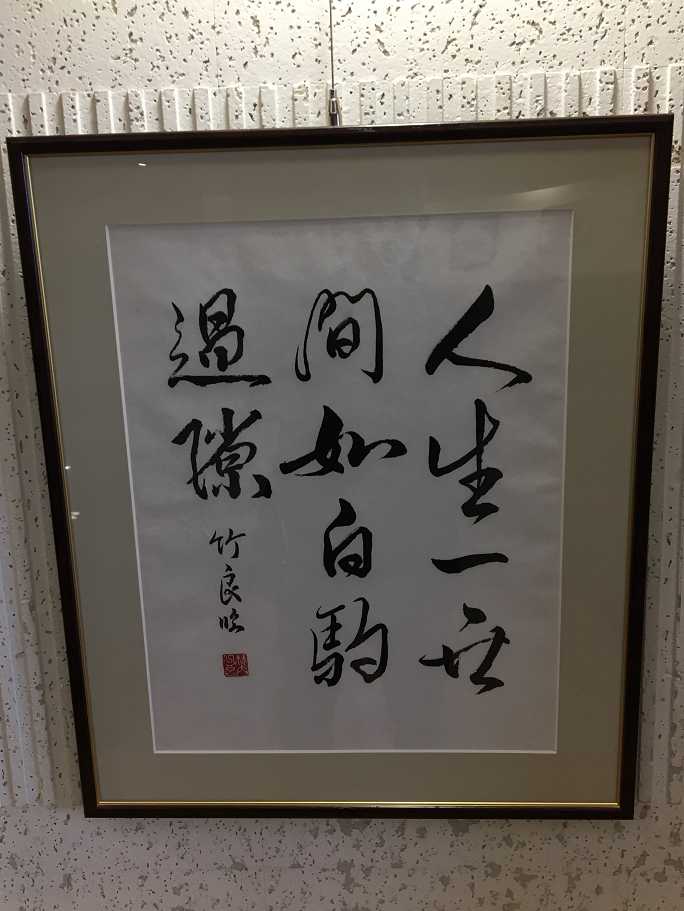 人生一世
間如白駒
過隙
竹良